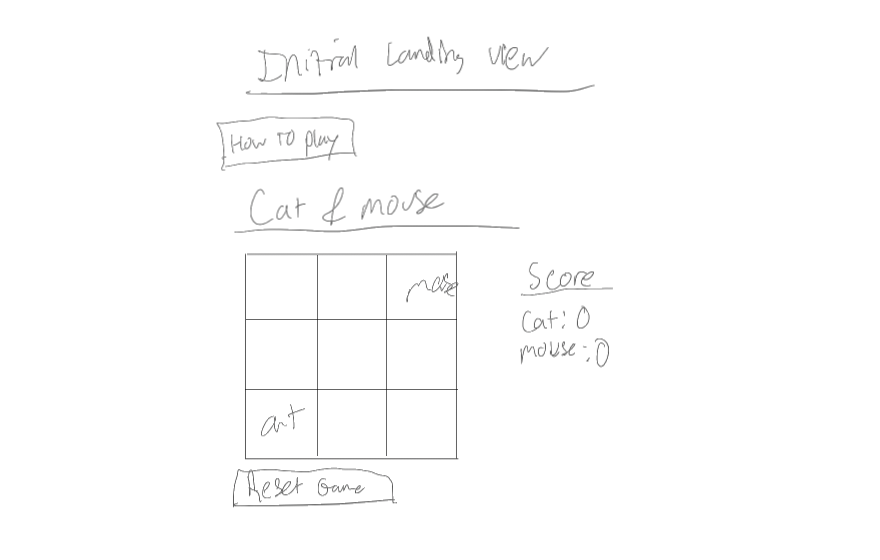 Initial Landing view
How To play
Cat & mouse
mouse
Score
Cat: 0
mouse: 0
Reset Game